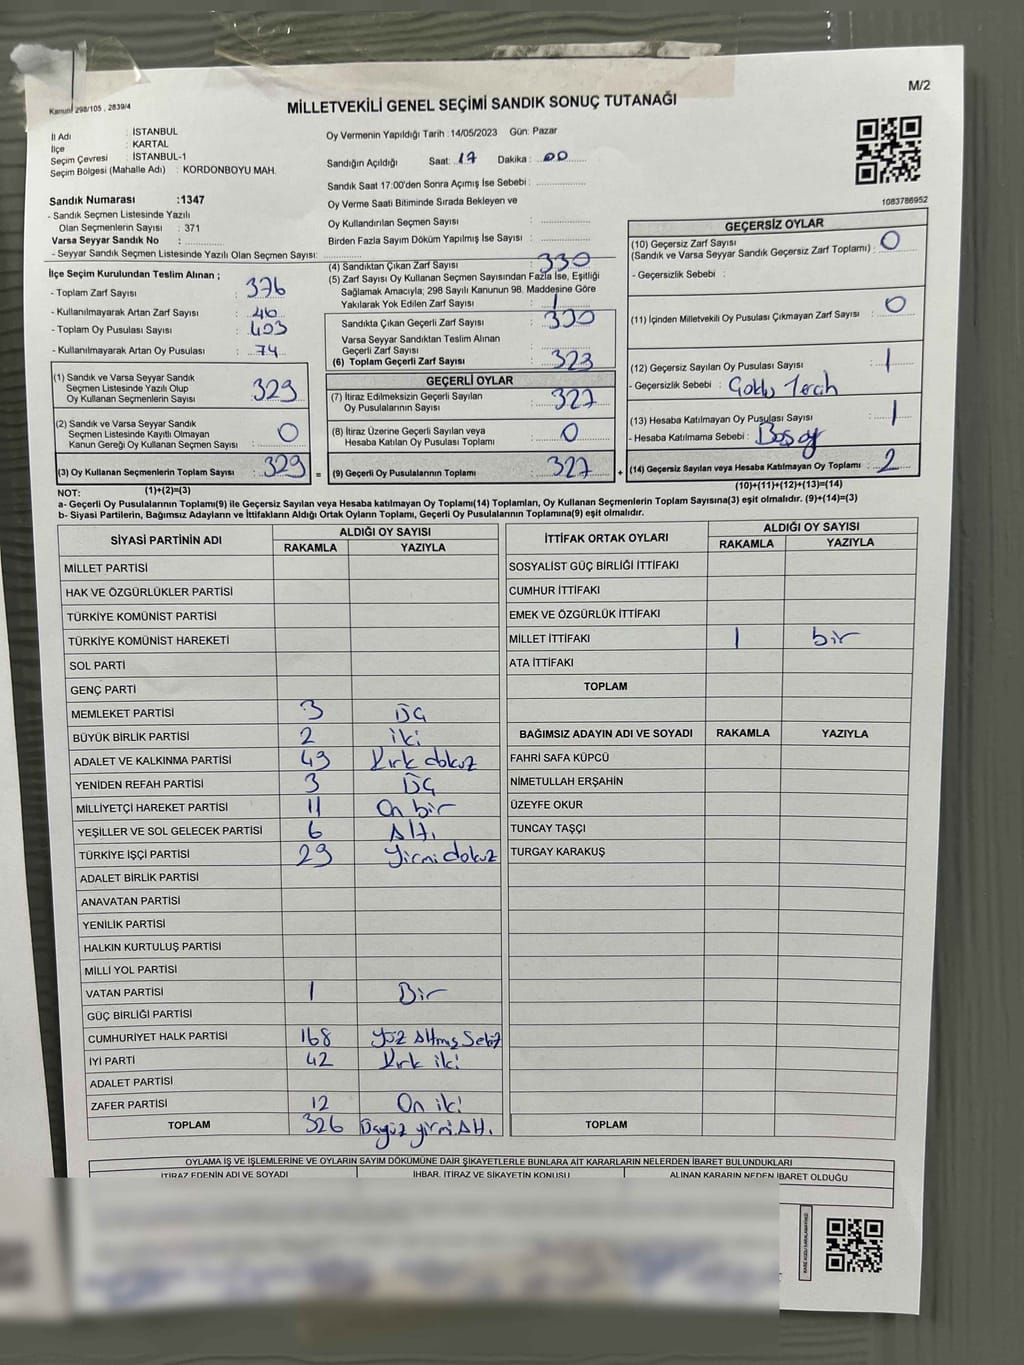 Kanun: 298/105 , 2839/4
M/2
MİLLETVEKİLİ GENEL SEÇİMİ SANDIK SONUÇ TUTANAĞI
İl Adı : İSTANBUL
İlçe : KARTAL
Seçim Çevresi : İSTANBUL-1
Seçim Bölgesi (Mahalle Adı) : KORDONBOYU MAH.
Sandık Numarası :1347
- Sandık Seçmen Listesinde Yazılı
Olan Seçmenlerin Sayısı : 371
Varsa Seyyar Sandık No :
- Seyyar Sandık Seçmen Listesinde Yazılı Olan Seçmen Sayısı:
Oy Vermenin Yapıldığı Tarih :14/05/2023 Gün: Pazar
Sandığın Açıldığı Saat: 17 Dakika : 00
Sandık Saat 17:00'den Sonra Açımış İse Sebebi :
Oy Verme Saati Bitiminde Sırada Bekleyen ve
Oy Kullandırılan Seçmen Sayısı :
Birden Fazla Sayım Döküm Yapılmış İse Sayısı :
1083786952
İlçe Seçim Kurulundan Teslim Alınan ;
- Toplam Zarf Sayısı : 376
- Kullanılmayarak Artan Zarf Sayısı : 46
- Toplam Oy Pusulası Sayısı : 403
- Kullanılmayarak Artan Oy Pusulası : 74
(1) Sandık ve Varsa Seyyar Sandık
Seçmen Listesinde Yazılı Olup
Oy Kullanan Seçmenlerin Sayısı : 329
(2) Sandık ve Varsa Seyyar Sandık
Seçmen Listesinde Kayıtlı Olmayan
Kanun Gereği Oy Kullanan Seçmen Sayısı : 0
(3) Oy Kullanan Seçmenlerin Toplam Sayısı : 329
(1)+(2)=(3)
(4) Sandıktan Çıkan Zarf Sayısı : 330
(5) Zarf Sayısı Oy Kullanan Seçmen Sayısından Fazla İse, Eşitliği
Sağlamak Amacıyla; 298 Sayılı Kanunun 98. Maddesine Göre
Yakılarak Yok Edilen Zarf Sayısı : 1
Sandıkta Çıkan Geçerli Zarf Sayısı : 330
Varsa Seyyar Sandıktan Teslim Alınan
Geçerli Zarf Sayısı
(6) Toplam Geçerli Zarf Sayısı : 323
GEÇERLİ OYLAR
(7) İtiraz Edilmeksizin Geçerli Sayılan
Oy Pusulalarının Sayısı : 327
(8) İtiraz Üzerine Geçerli Sayılan veya
Hesaba Katılan Oy Pusulası Toplamı : 0
= (9) Geçerli Oy Pusulalarının Toplamı : 327
GEÇERSİZ OYLAR
(10) Geçersiz Zarf Sayısı
(Sandık ve Varsa Seyyar Sandık Geçersiz Zarf Toplamı) : 0
- Geçersizlik Sebebi :
(11) İçinden Milletvekili Oy Pusulası Çıkmayan Zarf Sayısı : 0
(12) Geçersiz Sayılan Oy Pusulası Sayısı : 1
- Geçersizlik Sebebi :
(13) Hesaba Katılmayan Oy Pusulası Sayısı : 1
- Hesaba Katılmama Sebebi : Boş oy
+ (14) Geçersiz Sayılan veya Hesaba Katılmayan Oy Toplamı : 2
(10)+(11)+(12)+(13)=(14)
NOT:
a- Geçerli Oy Pusulalarının Toplamı(9) ile Geçersiz Sayılan veya Hesaba katılmayan Oy Toplamı(14) Toplamları, Oy Kullanan Seçmenlerin Toplam Sayısına(3) eşit olmalıdır. (9)+(14)=(3)
b- Siyasi Partilerin, Bağımsız Adayların ve İttifakların Aldığı Ortak Oyların Toplamı, Geçerli Oy Pusulalarının Toplamına(9) eşit olmalıdır.
SİYASİ PARTİNİN ADI ALDIĞI OY SAYISI
RAKAMLA YAZIYLA
MİLLET PARTİSİ
HAK VE ÖZGÜRLÜKLER PARTİSİ
TÜRKİYE KOMÜNİST PARTİSİ
TÜRKİYE KOMÜNİST HAREKETİ
SOL PARTİ
GENÇ PARTİ
MEMLEKET PARTİSİ 3 Üç
BÜYÜK BİRLİK PARTİSİ 2 iki
ADALET VE KALKINMA PARTİSİ 49 Kırk dokuz
YENİDEN REFAH PARTİSİ 3 Üç
MİLLİYETÇİ HAREKET PARTİSİ 11 On bir
YEŞİLLER VE SOL GELECEK PARTİSİ 6 Altı
TÜRKİYE İŞÇİ PARTİSİ 29 Yirmi dokuz
ADALET BİRLİK PARTİSİ
ANAVATAN PARTİSİ
YENİLİK PARTİSİ
HALKIN KURTULUŞ PARTİSİ
MİLLİ YOL PARTİSİ
VATAN PARTİSİ 1 Bir
GÜÇ BİRLİĞİ PARTİSİ
CUMHURİYET HALK PARTİSİ 168 Yüz Altmış Sekiz
İYİ PARTİ 42 Kırk iki
ADALET PARTİSİ
ZAFER PARTİSİ 12 On iki
TOPLAM 326 Üçyüz yirmi Altı
İTTİFAK ORTAK OYLARI ALDIĞI OY SAYISI
RAKAMLA YAZIYLA
SOSYALİST GÜÇ BİRLİĞİ İTTİFAKI
CUMHUR İTTİFAKI
EMEK VE ÖZGÜRLÜK İTTİFAKI
MİLLET İTTİFAKI 1 bir
ATA İTTİFAKI
TOPLAM
BAĞIMSIZ ADAYIN ADI VE SOYADI RAKAMLA YAZIYLA
FAHRİ SAFA KÜPCÜ
NİMETULLAH ERŞAHİN
ÜZEYFE OKUR
TUNCAY TAŞÇI
TURGAY KARAKUŞ
TOPLAM
OYLAMA İŞ VE İŞLEMLERİNE VE OYLARIN SAYIM DÖKÜMÜNE DAİR ŞİKAYETLERLE BUNLARA AİT KARARLARIN NELERDEN İBARET BULUNDUKLARI
İTİRAZ EDENİN ADI VE SOYADI İHBAR, İTİRAZ VE ŞİKAYETİN KONUSU ALINAN KARARIN NEDEN İBARET OLDUĞU